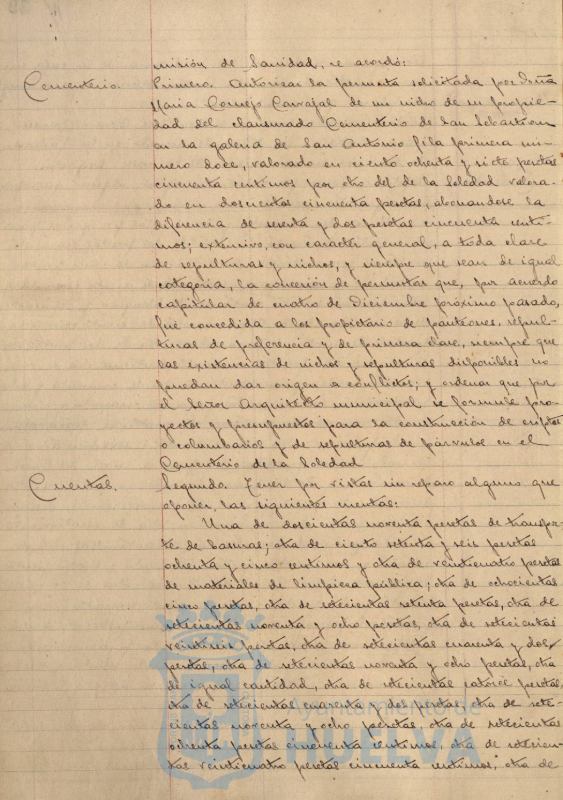 misión de Sanidad, se acordó:
Cementerio. Primero. Autorizar la permuta solicitada por Doña
Maria Cornejo Carvajal de un nicho de su propie-
dad del clausurado Cementerio de San Sebastian
en la galeria de San Antonio fila primera nú-
mero doce, valorado en ciento ochenta y siete pesetas
cincuenta centimos por otro del de la Soledad valora-
do en doscientas cincuenta pesetas, abonandose la
diferencia de sesenta y dos pesetas cincuenta centi-
mos; extensivo, con caracter general, a toda clase
de sepulturas y nichos, y siempre que sean de igual
categoria, la concesión de permutas que, por acuerdo
capitular de cuatro de Diciembre próximo pasado,
fué concedida a los propietario de panteones, sepul-
turas de preferencia y de primera clase, siempre que
las existencias de nichos y sepulturas disponibles no
puedan dar origen a conflictos; y ordenar que por
el Señor Arquitecto municipal se formule pro-
yectos y presupuestos para la construcción de criptas
o columbarios y de sepulturas de párvulos en el
Cementerio de la Soledad
Cuentas. Segundo. Tener por vistas sin reparo alguno que
oponer, las siguientes cuentas:
Una de doscientas noventa pesetas de transpor-
te de basuras; otra de ciento setenta y seis pesetas
ochenta y cinco centimos y otra de veinticuatro pesetas
de materiales de limpieza pública; otra de ochocientas
cinco pesetas, otra de setecientas setenta pesetas, otra de
setecientas noventa y ocho pesetas, otra de setecientas
veintiseis pesetas, otra de setecientas cuarenta y dos
pesetas, otra de setecientas noventa y ocho pesetas, otra
de igual cantidad, otra de setecientas catorce pesetas,
otra de setecientas cuarenta y dos pesetas, otra de sete-
cientas noventa y ocho pesetas, otra de setecientas
ochenta pesetas cincuenta centimos, otra de setecien-
tas veinticuatro pesetas cincuenta centimos, otra de
Ayuntamiento de
HUELVA